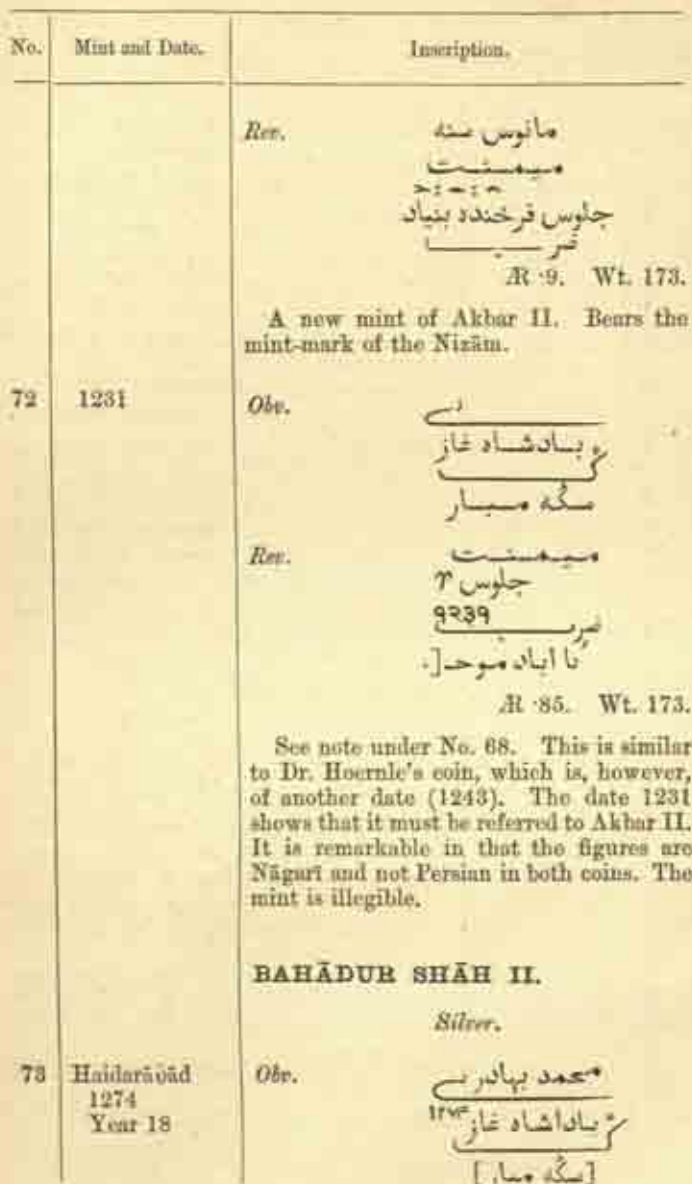 No. Mint and Date. Inscription.
Rev. مانوس سنه
میمنت
جلوس فرخنده بنیاد
ضرب
Æ ·9. Wt. 173.
A new mint of Akbar II. Bears the
mint-mark of the Nizām.
72 1231 Obv.
بادشاه غاز
سکّه مبار
Rev. میمنت
جلوس
१२३१ ضرب
اباد
Æ ·85. Wt. 173.
See note under No. 68. This is similar
to Dr. Hoernle's coin, which is, however,
of another date (1243). The date 1231
shows that it must be referred to Akbar II.
It is remarkable in that the figures are
Nāgarī and not Persian in both coins. The
mint is illegible.
BAHĀDUR SHĀH II.
Silver.
73 Haidarābād Obv. محمد بهادر
1274 باداشاه غاز ۱۲۷۴
Year 18
[سکّه مبار]